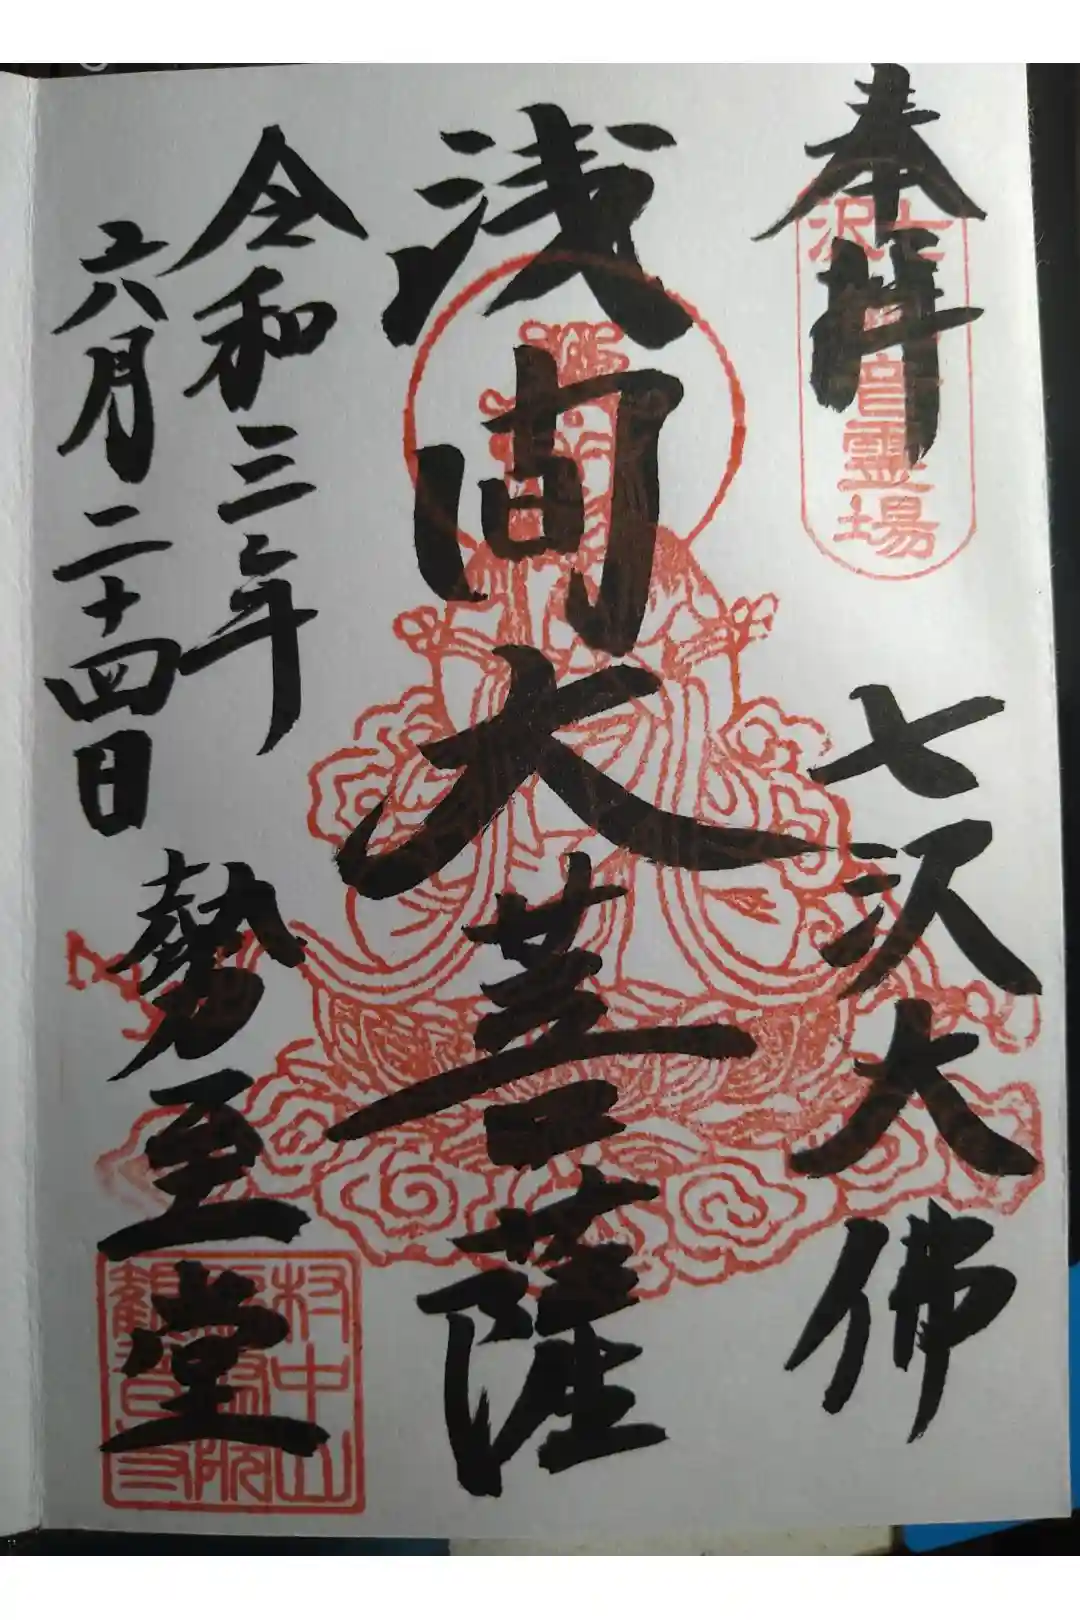 奉拝
七沢大佛
浅間大菩薩
令和三年
六月二十四日
勢至堂
七沢観音霊場
村中山
観音寺